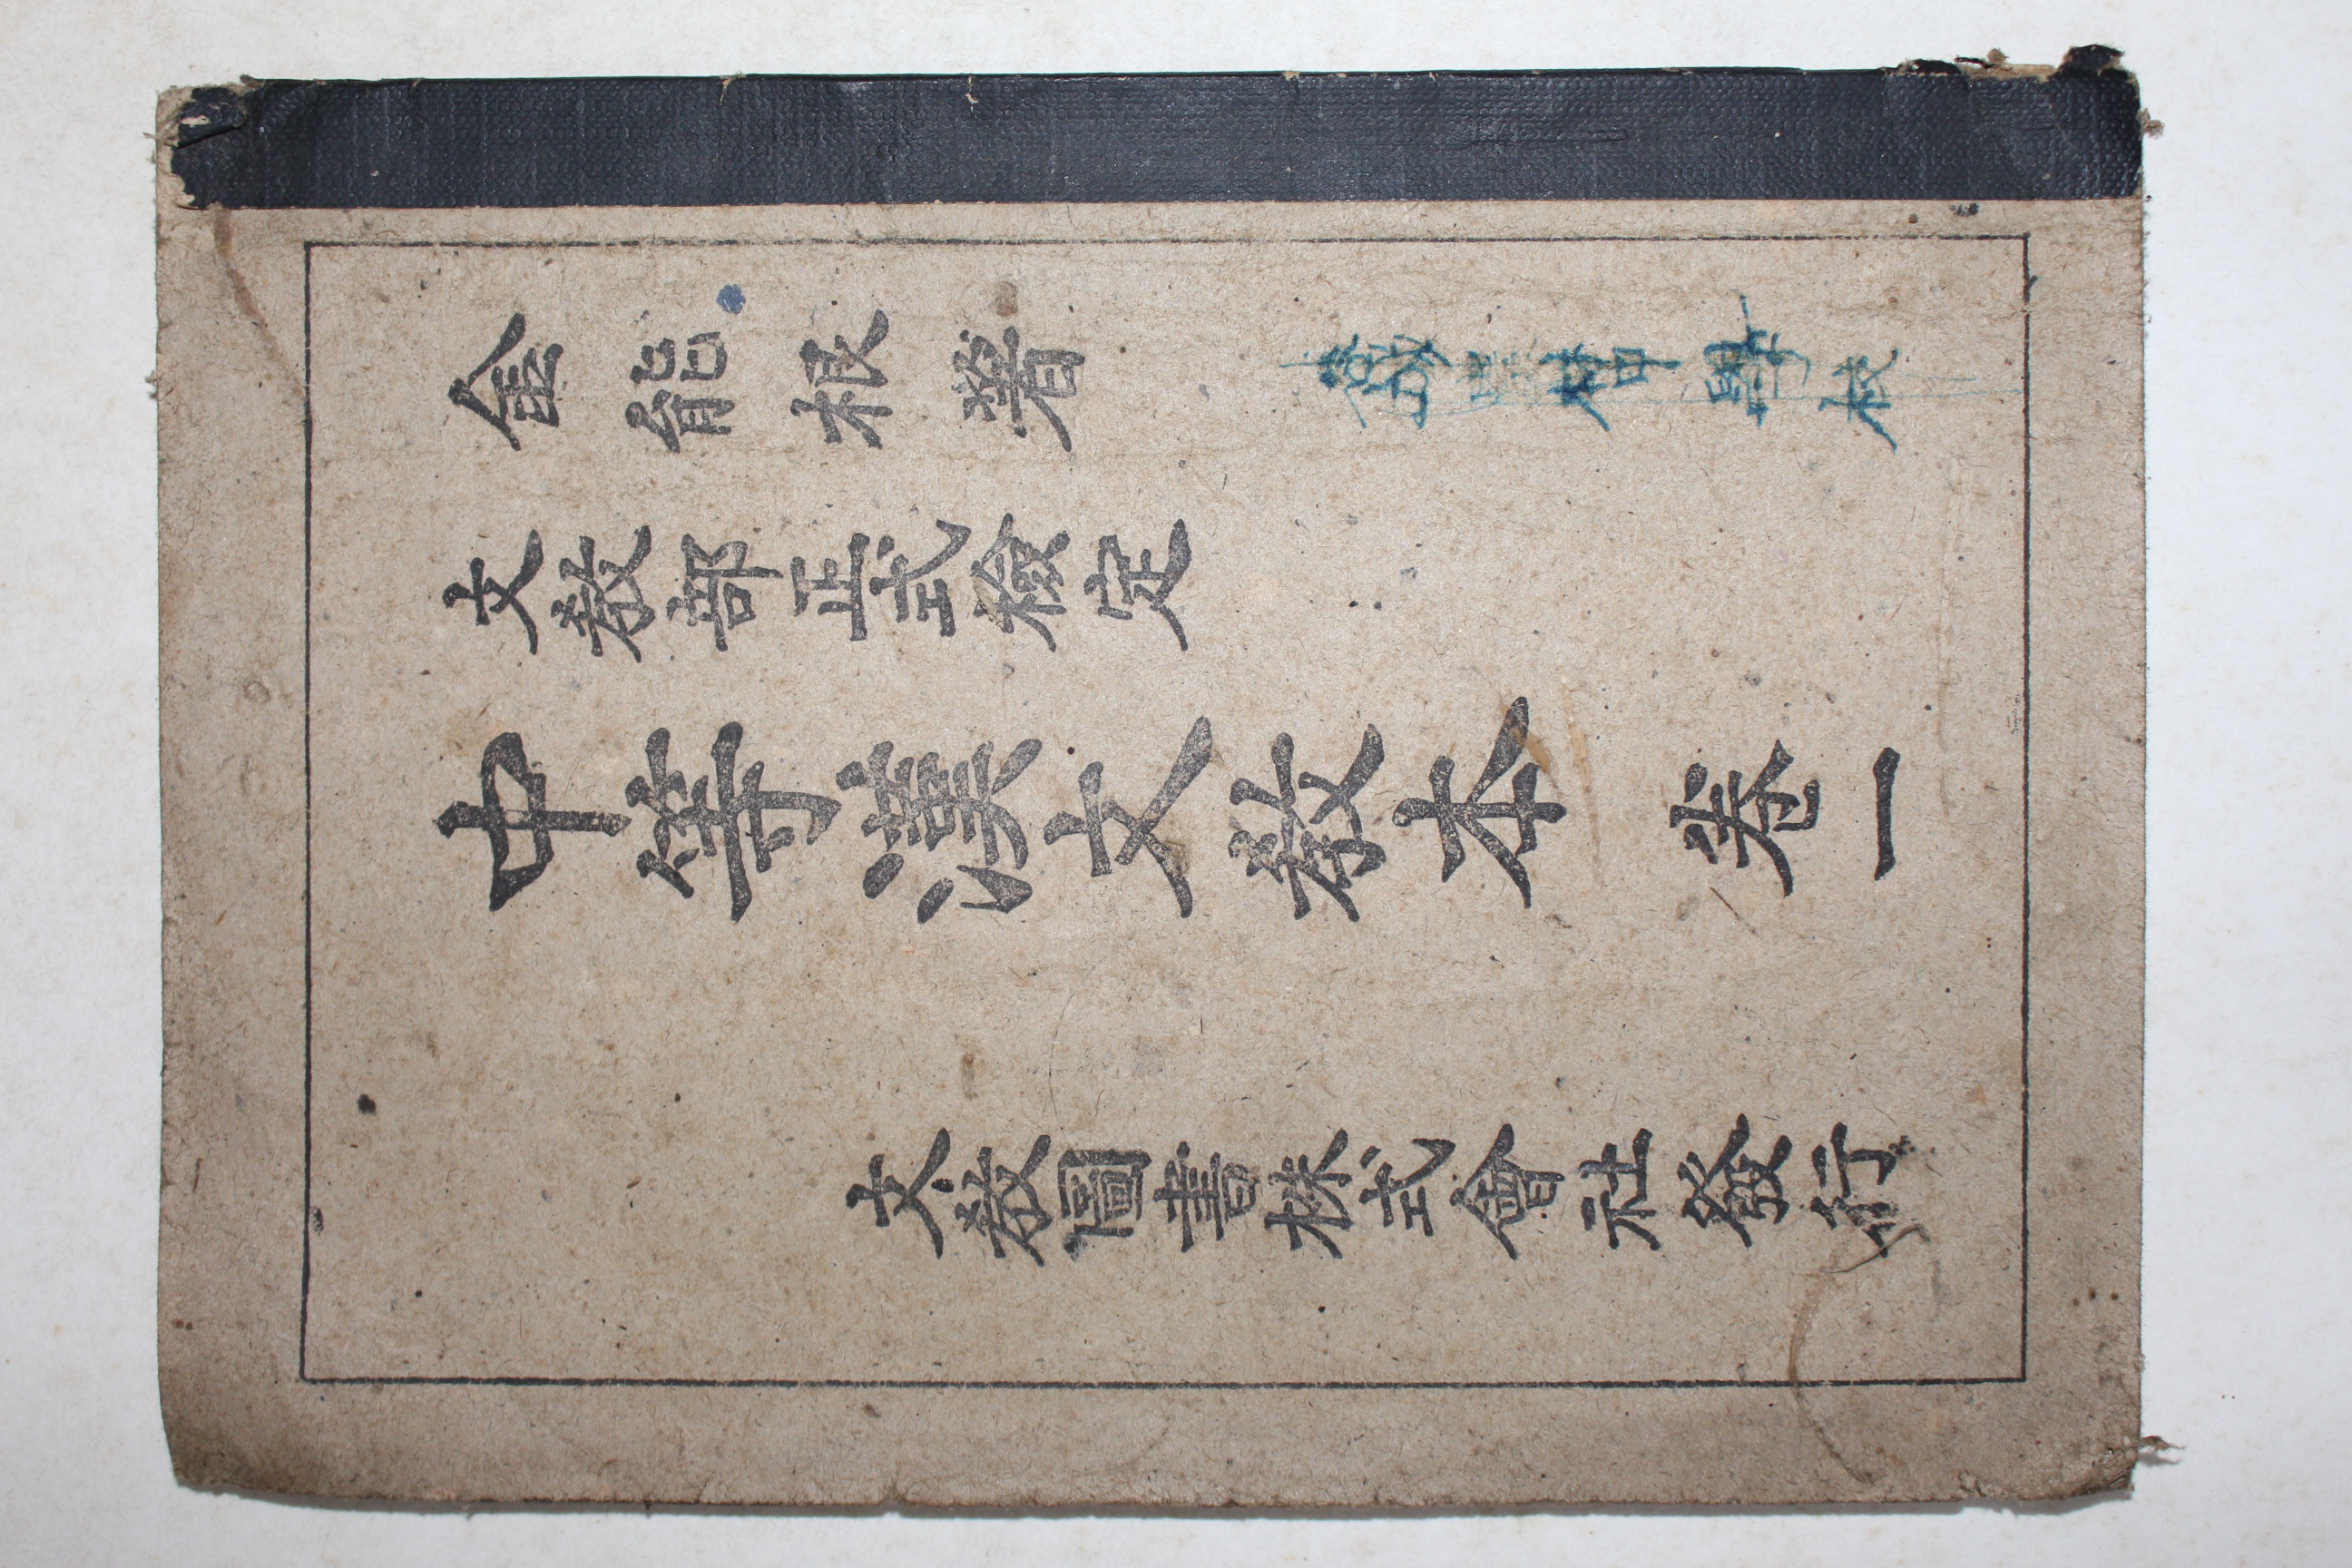 金能根著
文敎部正式檢定
中等漢文敎本 卷一
文敎圖書株式會社發行